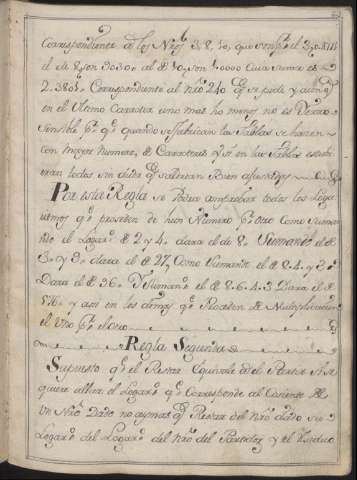 Correspondiente à los Nros 3. 8. 10, que son p.r el
el de 8. son 90309. al de 10, son 10000 Cuia suma es
2.3801. Correspondiente al nro 240 q.e se pide y aunq.
en el Ultimo Caracter uno mas ho menos no es Yerro
Sensible p.r q.e quando se fabrican las Tablas se hacen
con mayor numero, de Caracteres y si en las Tablas estub
ieran todos sin duda q.e saldrian Bien ajustados
Por esta Regla se Podra comprobar todos los Loga
ritmos q.e proceden de hun Numero p.r Otro como Suman
do el Logar.o de 2 y 4. dara el de 8. Sumando el de
3. y 9. dara el de 27, Como Sumando el de 8. 4. y 3.
Dara el de 96. Y Sumando el de 8. 6. 4. 3. Dara el de
576. y asi en los demas q.e Proceden de Multiplicacion
el Uno p.r el otro
Regla Segunda
Supuesto q.e el Restar equivale al Partir Si se
quiere allar el Logar.o q.e Corresponde al Cociente de
Un Nro. Dado no ay mas q.e Restar del Nro. dicho su
Logar.o del Logar.o del Nro. del Partidor y el Residuo